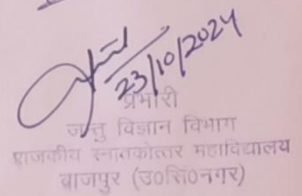 23/10/2024
प्रभारी
जन्तु विज्ञान विभाग
राजकीय स्नातकोत्तर महाविद्यालय
बाजपुर (उ0सिं0नगर)